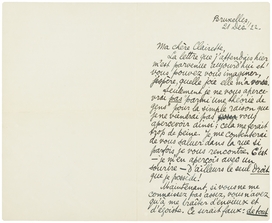 Bruxelles,
21 Déc. 22.
Ma chère Clairette,
La lettre que j'attendais hier
m'est parvenue aujourd'hui et
vous pouvez vous imaginer,
j'espère, quelle joie elle m'a
Seulement je ne vous aperce-
vrai pas "parmi une théorie de
gens" pour la simple raison que
je ne viendrai pas vous
apercevoir ainsi; cela me ferait
trop de peine. Je me contenterai
de vous saluer dans la rue si
parfois je vous rencontre. C'est
je m'en aperçois avec un
sourire – d'ailleurs le seul Droit
que je possède!
Maintenant, si vous ne me
connaissiez pas assez, vous
qu'à me traiter d'envieux et
d'égoïste. Ce serait faux: